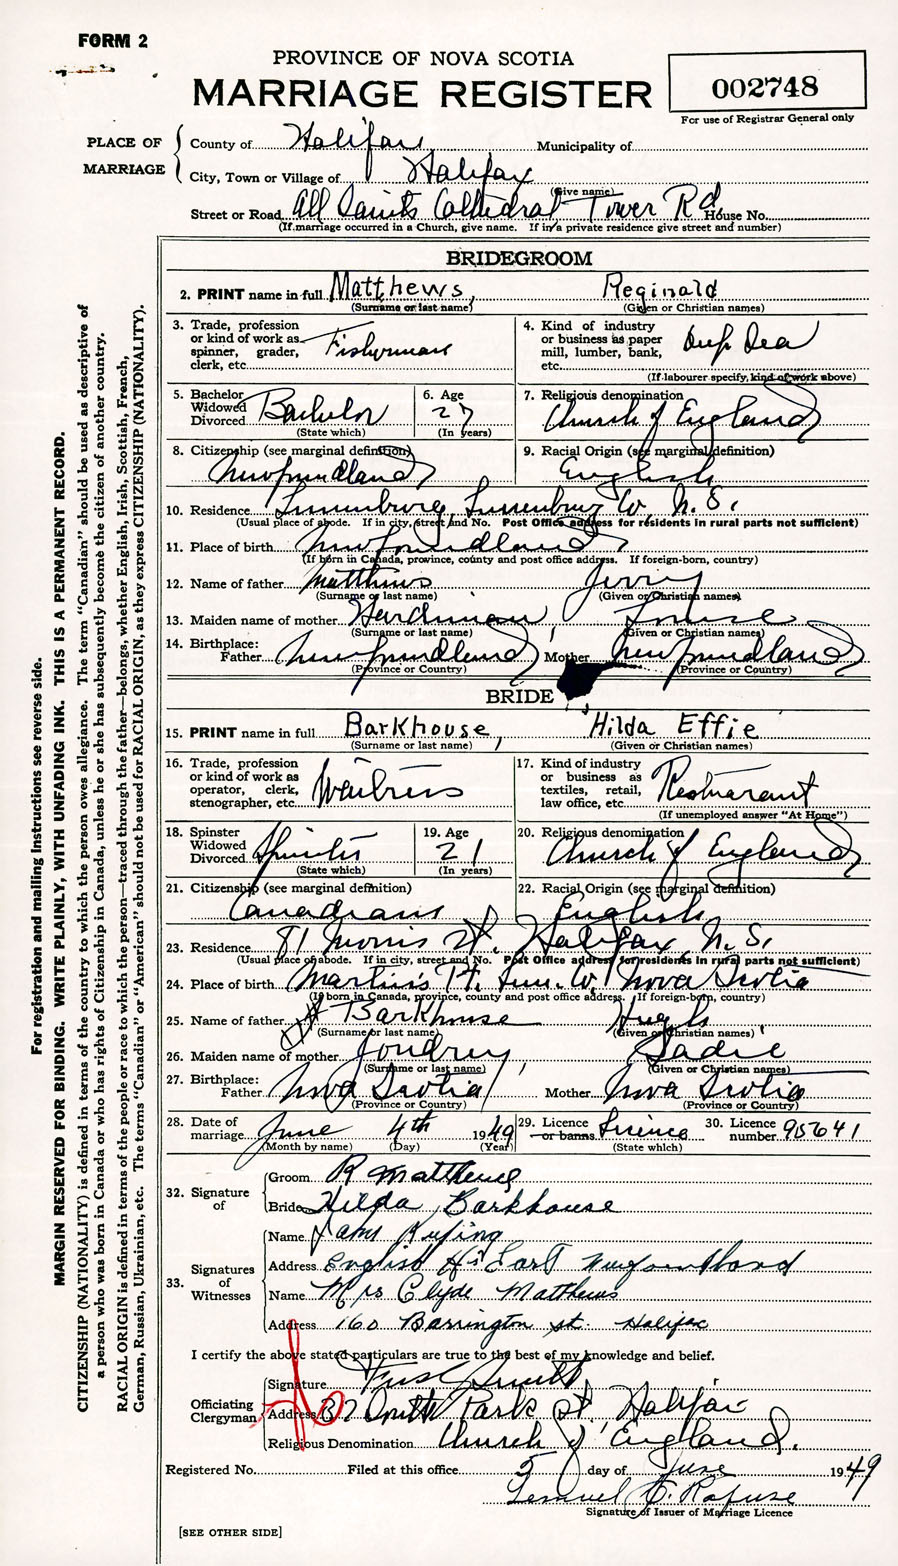 FORM 2
PROVINCE OF NOVA SCOTIA
MARRIAGE REGISTER
002748
For use of Registrar General only
PLACE OF MARRIAGE
County of Halifax Municipality of
City, Town or Village of Halifax
(Give name)
Street or Road All Saints Cathedral Tower Rd House No.
(If marriage occurred in a Church, give name. If in a private residence give street and number)
BRIDEGROOM
2. PRINT name in full Matthews, Reginald
(Surname or last name) (Given or Christian names)
3. Trade, profession or kind of work as spinner, grader, clerk, etc. Fisherman
4. Kind of industry or business as paper mill, lumber, bank, etc. Deep Sea
(If labourer specify, kind of work above)
5. Bachelor Widowed Divorced Bachelor
(State which)
6. Age 27
(In years)
7. Religious denomination
Church of England
8. Citizenship (see marginal definition)
Newfoundland
9. Racial Origin (see marginal definition)
English
10. Residence Lunenburg, Lunenburg Co. N.S.
(Usual place of abode. If in city, street and No. Post Office address for residents in rural parts not sufficient)
11. Place of birth Newfoundland
(If born in Canada, province, county and post office address. If foreign-born, country)
12. Name of father Matthews Jerry
(Surname or last name) (Given or Christian names)
13. Maiden name of mother Hardiman, Louise
(Surname or last name) (Given or Christian names)
14. Birthplace: Father Newfoundland Mother Newfoundland
(Province or Country) (Province or Country)
BRIDE
15. PRINT name in full Barkhouse, Hilda Effie
(Surname or last name) (Given or Christian names)
16. Trade, profession or kind of work as operator, clerk, stenographer, etc. Waitress
17. Kind of industry or business as textiles, retail, law office, etc. Restuarant
(If unemployed answer "At Home")
18. Spinster Widowed Divorced Spinster
(State which)
19. Age 21
(In years)
20. Religious denomination
Church of England
21. Citizenship (see marginal definition)
Canadian
22. Racial Origin (see marginal definition)
English
23. Residence 81 Morris St. Halifax N.S.
(Usual place of abode. If in city, street and No. Post Office address for residents in rural parts not sufficient)
24. Place of birth Martin's Pt. Lun. Co. Nova Scotia
(If born in Canada, province, county and post office address. If foreign-born, country)
25. Name of father Barkhouse Hugh
(Surname or last name) (Given or Christian names)
26. Maiden name of mother Joudrey, Sadie
(Surname or last name) (Given or Christian names)
27. Birthplace: Father Nova Scotia Mother Nova Scotia
(Province or Country) (Province or Country)
28. Date of marriage June 4th 1949
(Month by name) (Day) (Year)
29. Licence or banns License
(State which)
30. Licence number 90641
32. Signature of
Groom R Matthews
Bride Hilda Barkhouse
33. Signatures of Witnesses
Name
Address English Hr East Newfoundland
Name Mrs Clyde Matthews
Address 160 Barrington st. Halifax
I certify the above stated particulars are true to the best of my knowledge and belief.
Officiating Clergyman
Signature
Address 57 South Park St. Halifax
Religious Denomination Church of England.
Registered No. Filed at this office 5 day of June 1949
Lemuel C. Rafuse
Signature of Issuer of Marriage Licence
[SEE OTHER SIDE]
For registration and mailing instructions see reverse side.
MARGIN RESERVED FOR BINDING. WRITE PLAINLY, WITH UNFADING INK. THIS IS A PERMANENT RECORD.
CITIZENSHIP (NATIONALITY) is defined in terms of the country to which the person owes allegiance. The term "Canadian" should be used as descriptive of
a person who was born in Canada or who has rights of Citizenship in Canada, unless he or she has subsequently become the citizen of another country.
RACIAL ORIGIN is defined in terms of the people or race to which the person—traced through the father—belongs, whether English, Irish, Scottish, French,
German, Russian, Ukrainian, etc. The terms "Canadian" or "American" should not be used for RACIAL ORIGIN, as they express CITIZENSHIP (NATIONALITY).